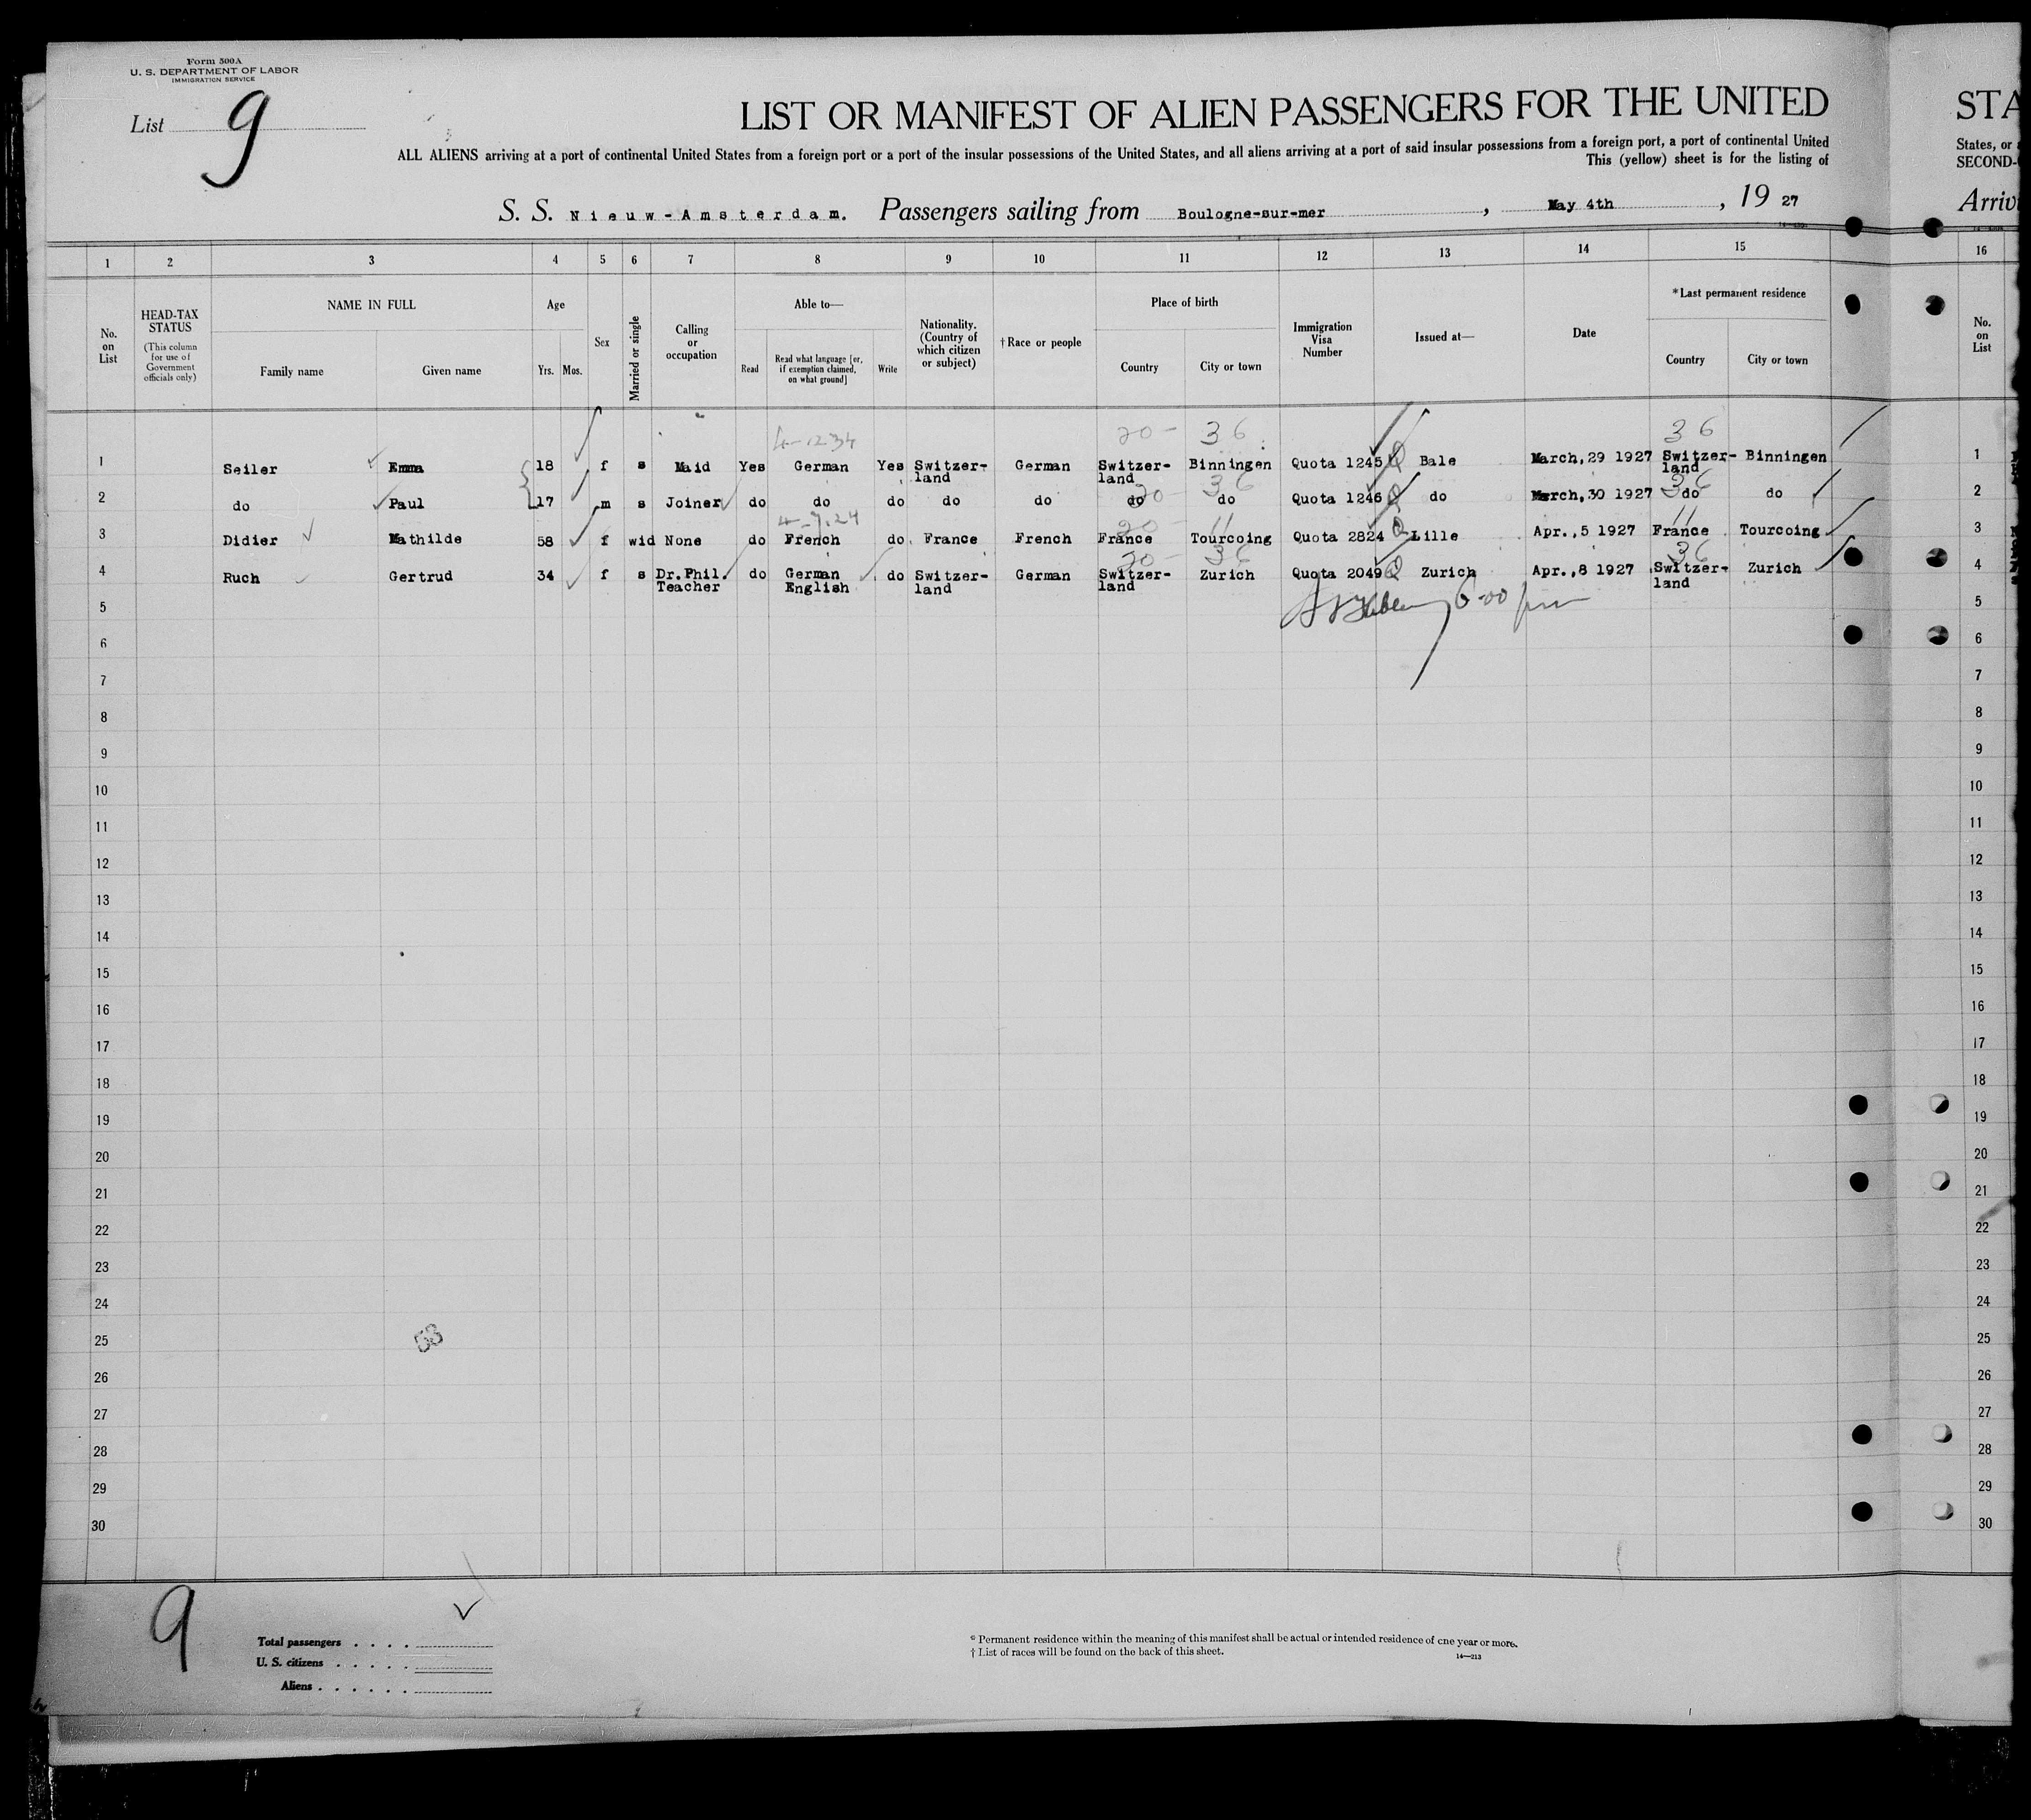 Form 500A
U. S. DEPARTMENT OF LABOR
IMMIGRATION SERVICE
List 9
LIST OR MANIFEST OF ALIEN PASSENGERS FOR THE UNITED
STA
ALL ALIENS arriving at a port of continental United States from a foreign port or a port of the insular possessions of the United States, and all aliens arriving at a port of said insular possessions from a foreign port, a port of continental United
States, or
This (yellow) sheet is for the listing of
SECOND-
S. S. Nieuw-Amsterdam. Passengers sailing from Boulogne-sur-mer, May 4th, 19 27
Arriv
1 2 3 4 5 6 7 8 9 10 11 12 13 14 15 16
No. on List
HEAD-TAX STATUS
(This column for use of Government officials only)
NAME IN FULL
Family name Given name
Age
Yrs. Mos.
Sex
Married or single
Calling or occupation
Able to—
Read
Read what language [or, if exemption claimed, on what ground]
Write
Nationality. (Country of which citizen or subject)
† Race or people
Place of birth
Country City or town
Immigration Visa Number
Issued at—
Date
*Last permanent residence
Country City or town
No. on List
4-1234 20- 36 36
1 Seiler Emma 18 f s Maid Yes German Yes Switzer-land German Switzer-land Binningen Quota 1245 Bale March,29 1927 Switzer-land Binningen 1
20- 36 36
2 do Paul 17 m s Joiner do do do do do do do Quota 1246 do March,30 1927 do do 2
20- 11 11
3 Didier Mathilde 58 f wid None do French do France French France Tourcoing Quota 2824 Lille Apr.,5 1927 France Tourcoing 3
20- 36 36
4 Ruch Gertrud 34 f s Dr.Phil. Teacher do German English do Switzer-land German Switzer-land Zurich Quota 2049 Zurich Apr.,8 1927 Switzer-land Zurich 4
6-00 pm
5 5
6 6
7 7
8 8
9 9
10 10
11 11
12 12
13 13
14 14
15 15
16 16
17 17
18 18
19 19
20 20
21 21
22 22
23 23
24 24
25 25
53
26 26
27 27
28 28
29 29
30 30
9
Total passengers . . . .
U. S. citizens . . . . .
Aliens . . . . . .
* Permanent residence within the meaning of this manifest shall be actual or intended residence of one year or more.
† List of races will be found on the back of this sheet.
14—213